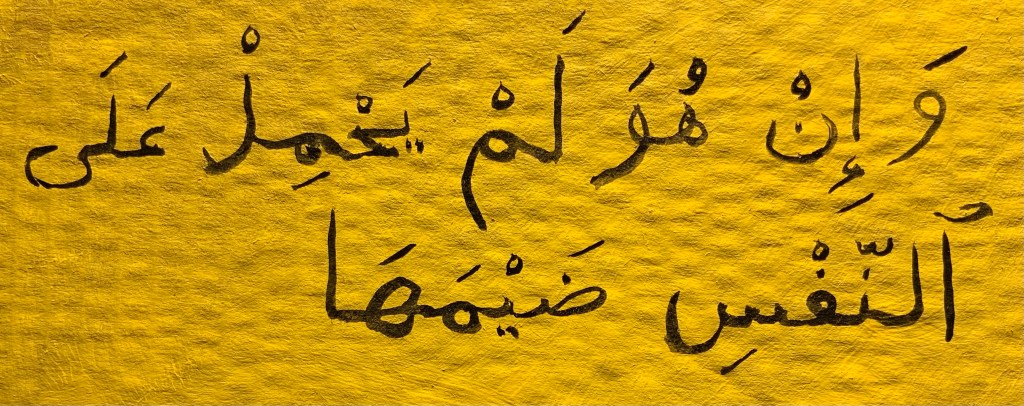 وَإِنْ هُوَ لَمْ يَحْمِلْ عَلَى
ٱلنَّفْسِ ضَيْمَهَا